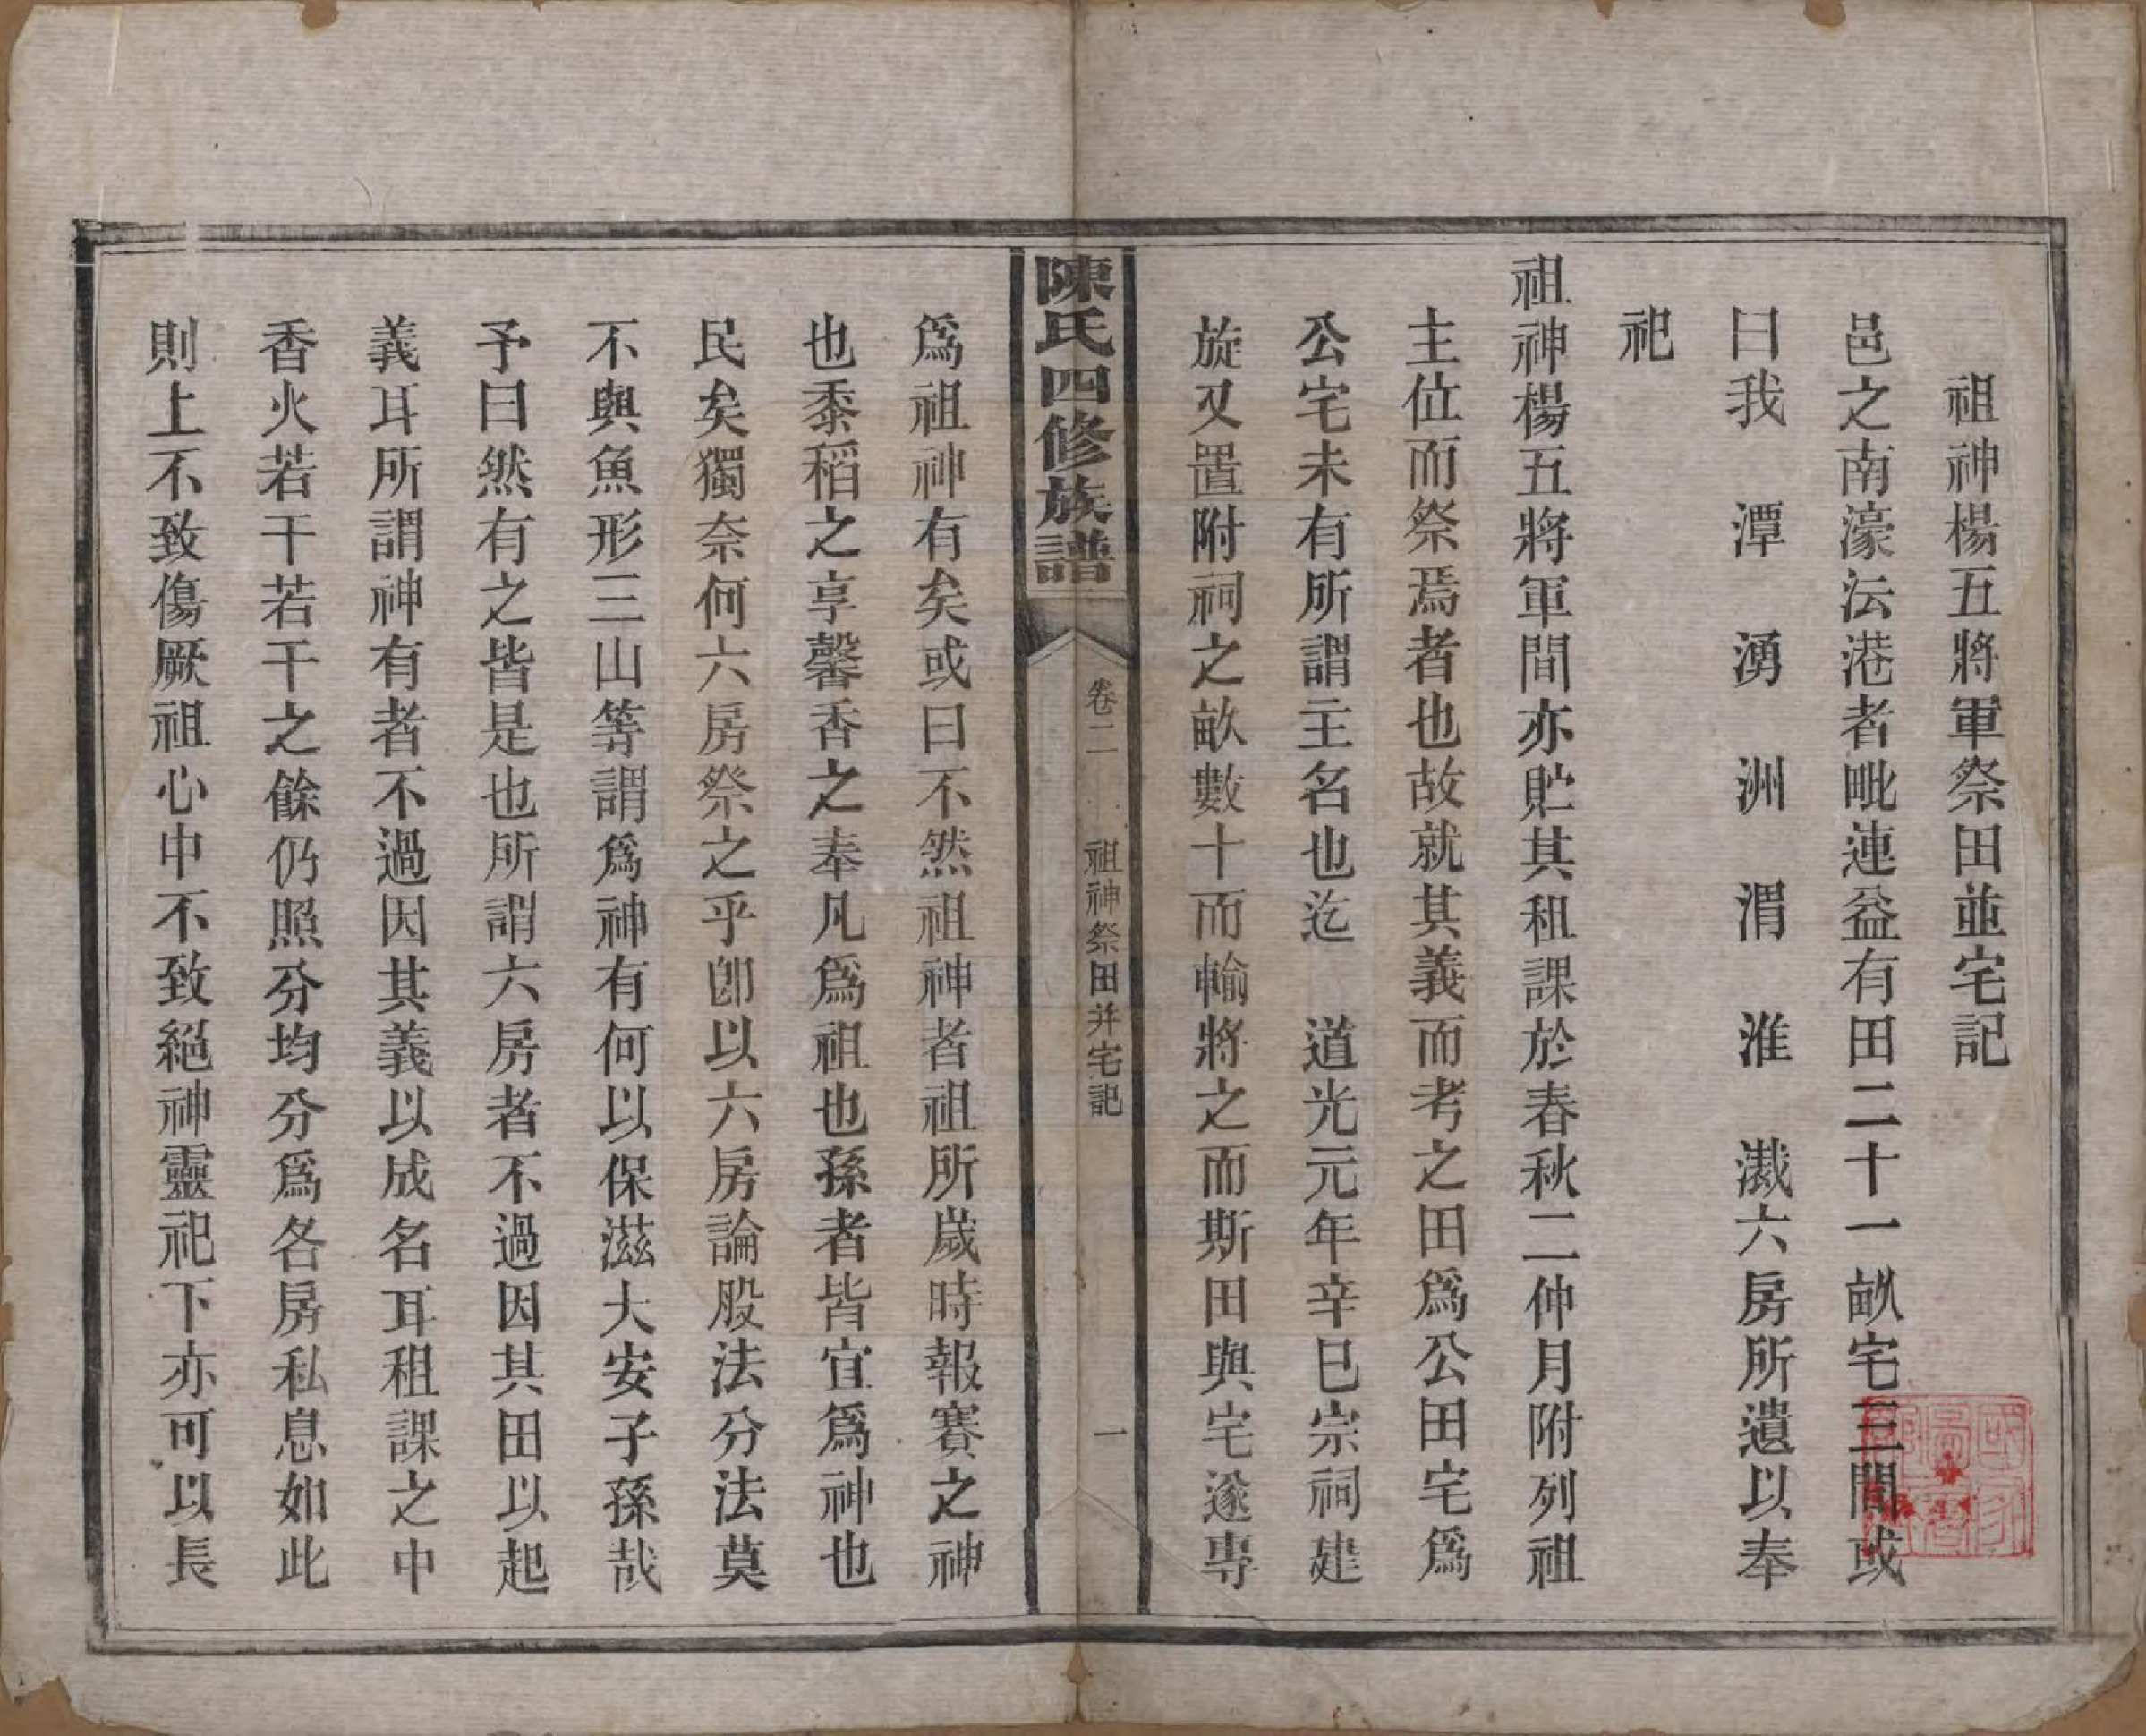 祖神楊五將軍祭田並宅記
邑之南濠沄港者毗連益有田二十一畝宅三間或
曰我　潭　湧　洲　渭　淮　濈六房所遺以奉
祀
祖神楊五將軍間亦貯其租課於春秋二仲月附列祖
主位而祭焉者也故就其義而考之田爲公田宅爲
公宅未有所謂主名也迄　道光元年辛巳宗祠建
旋又置附祠之畝數十而輸將之而斯田與宅遂專
陳氏四修族譜
卷二　祖神祭田并宅記　一
爲祖神有矣或曰不然祖神者祖所歲時報賽之神
也黍稻之享馨香之奉凡爲祖也孫者皆宜爲神也
民矣獨奈何六房祭之乎卽以六房論股法分法莫
不與魚形三山等謂爲神有何以保滋大安子孫哉
予曰然有之皆是也所謂六房者不過因其田以起
義耳所謂神有者不過因其義以成名耳租課之中
香火若干若干之餘仍照分均分爲各房私息如此
則上不致傷厥祖心中不致絕神靈祀下亦可以長